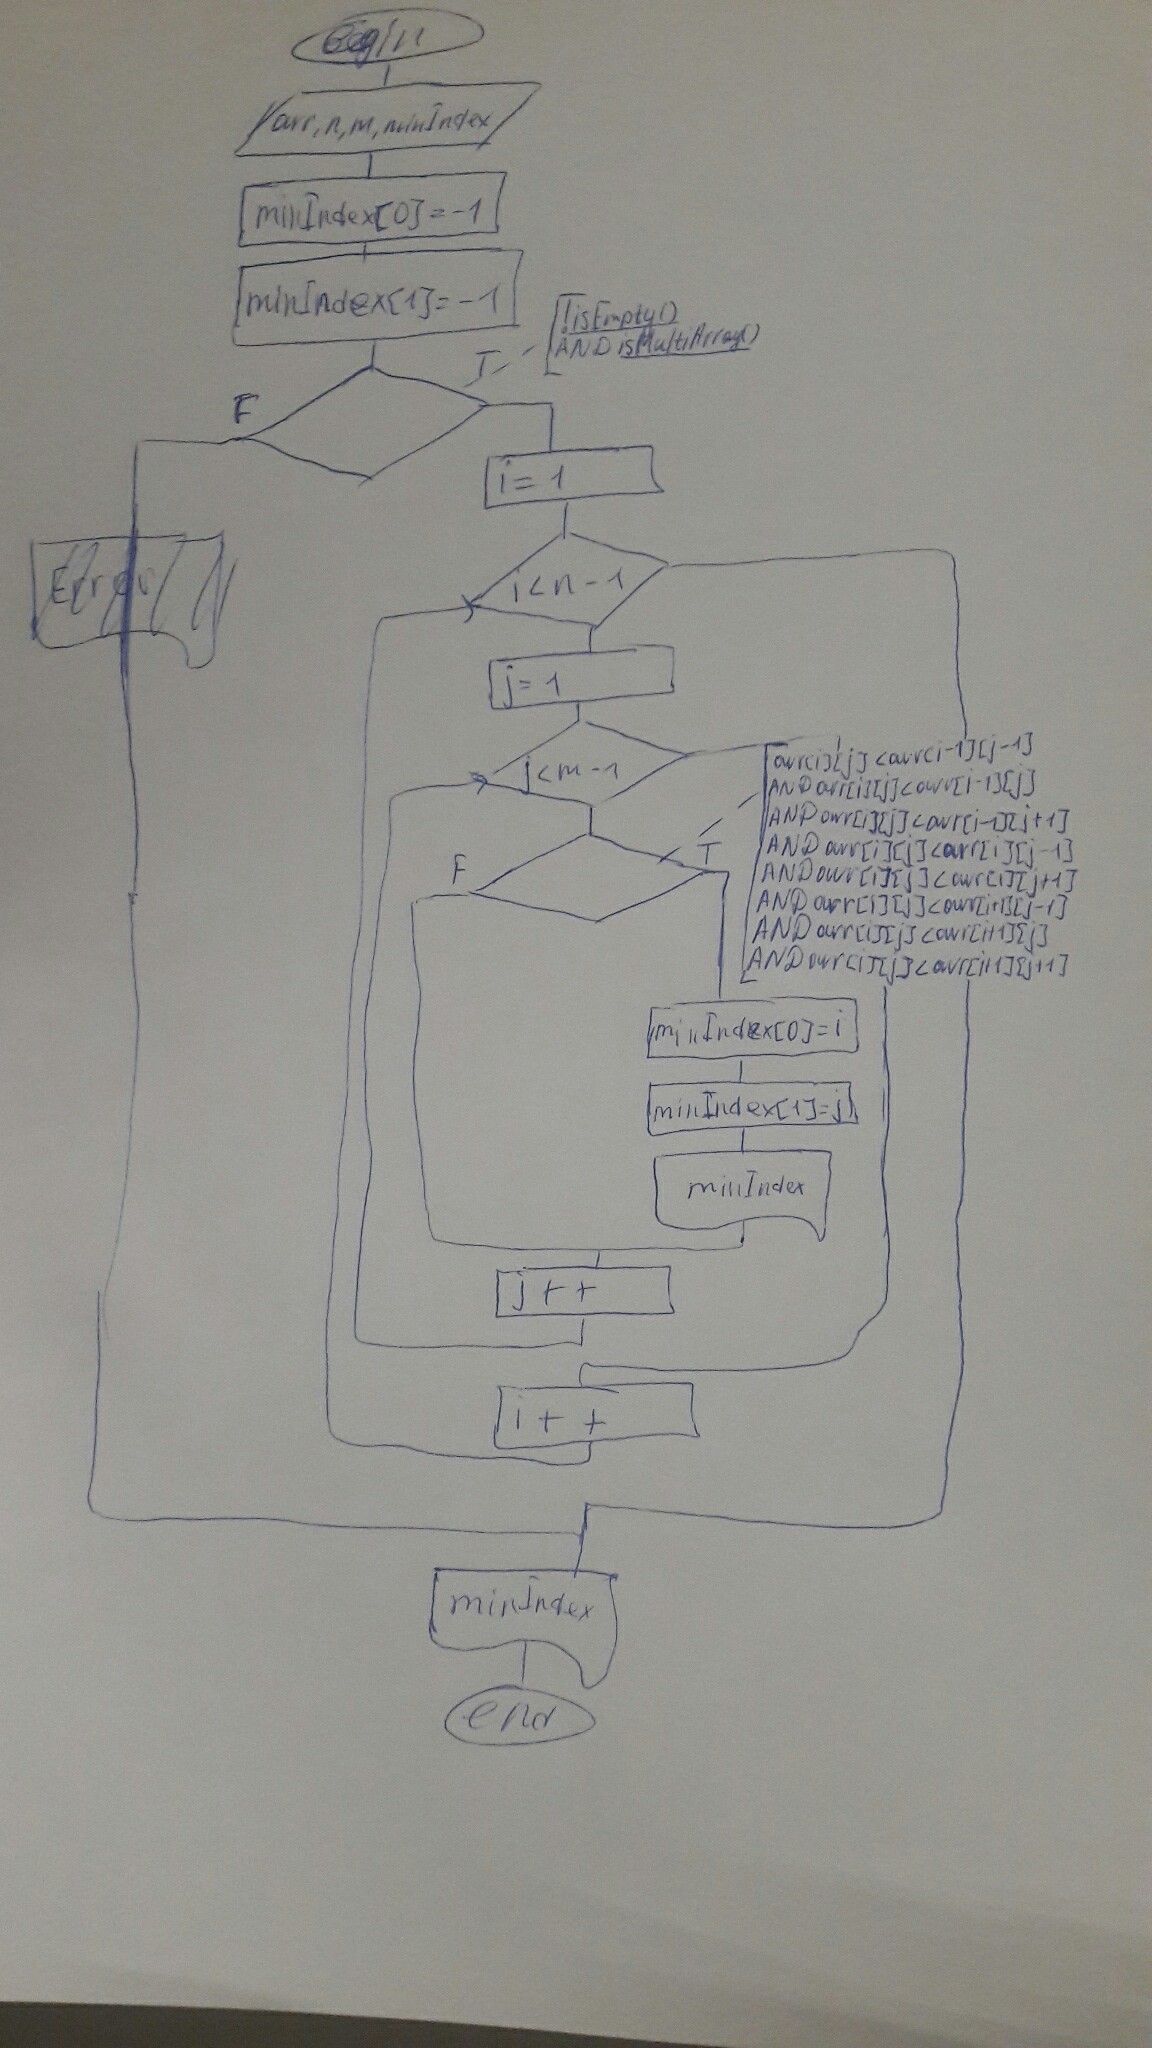 Begin
arr, n, m, minIndex
minIndex[0]=-1
minIndex[1]=-1
!isEmpty()
AND isMultiArray()
T
F
i=1
Error
i<n-1
j=1
j<m-1
arr[i][j]<arr[i-1][j-1]
AND arr[i][j]<arr[i-1][j]
AND arr[i][j]<arr[i-1][j+1]
AND arr[i][j]<arr[i][j-1]
AND arr[i][j]<arr[i][j+1]
AND arr[i][j]<arr[i+1][j-1]
AND arr[i][j]<arr[i+1][j]
AND arr[i][j]<arr[i+1][j+1]
F
T
minIndex[0]=i
minIndex[1]=j
minIndex
j++
i++
minIndex
end